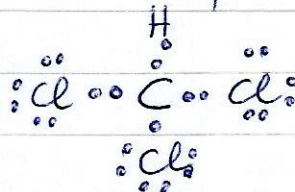 H
Cl C Cl
Cl